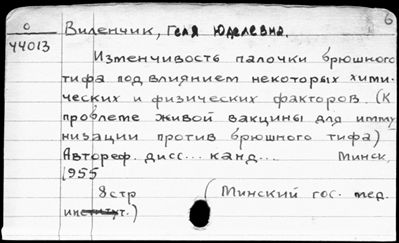 6
О
44013
Виленчик, Геля Юделевна.
Изменчивость палочки брюшного
тифа под влиянием некоторых хими-
ческих и физических факторов. (К
проблеме живой вакцины для имму
низации против брюшного тифа)
Автореф. дисс... канд... Минск,
1955
8 стр (Минский гос. мед.
институт.)